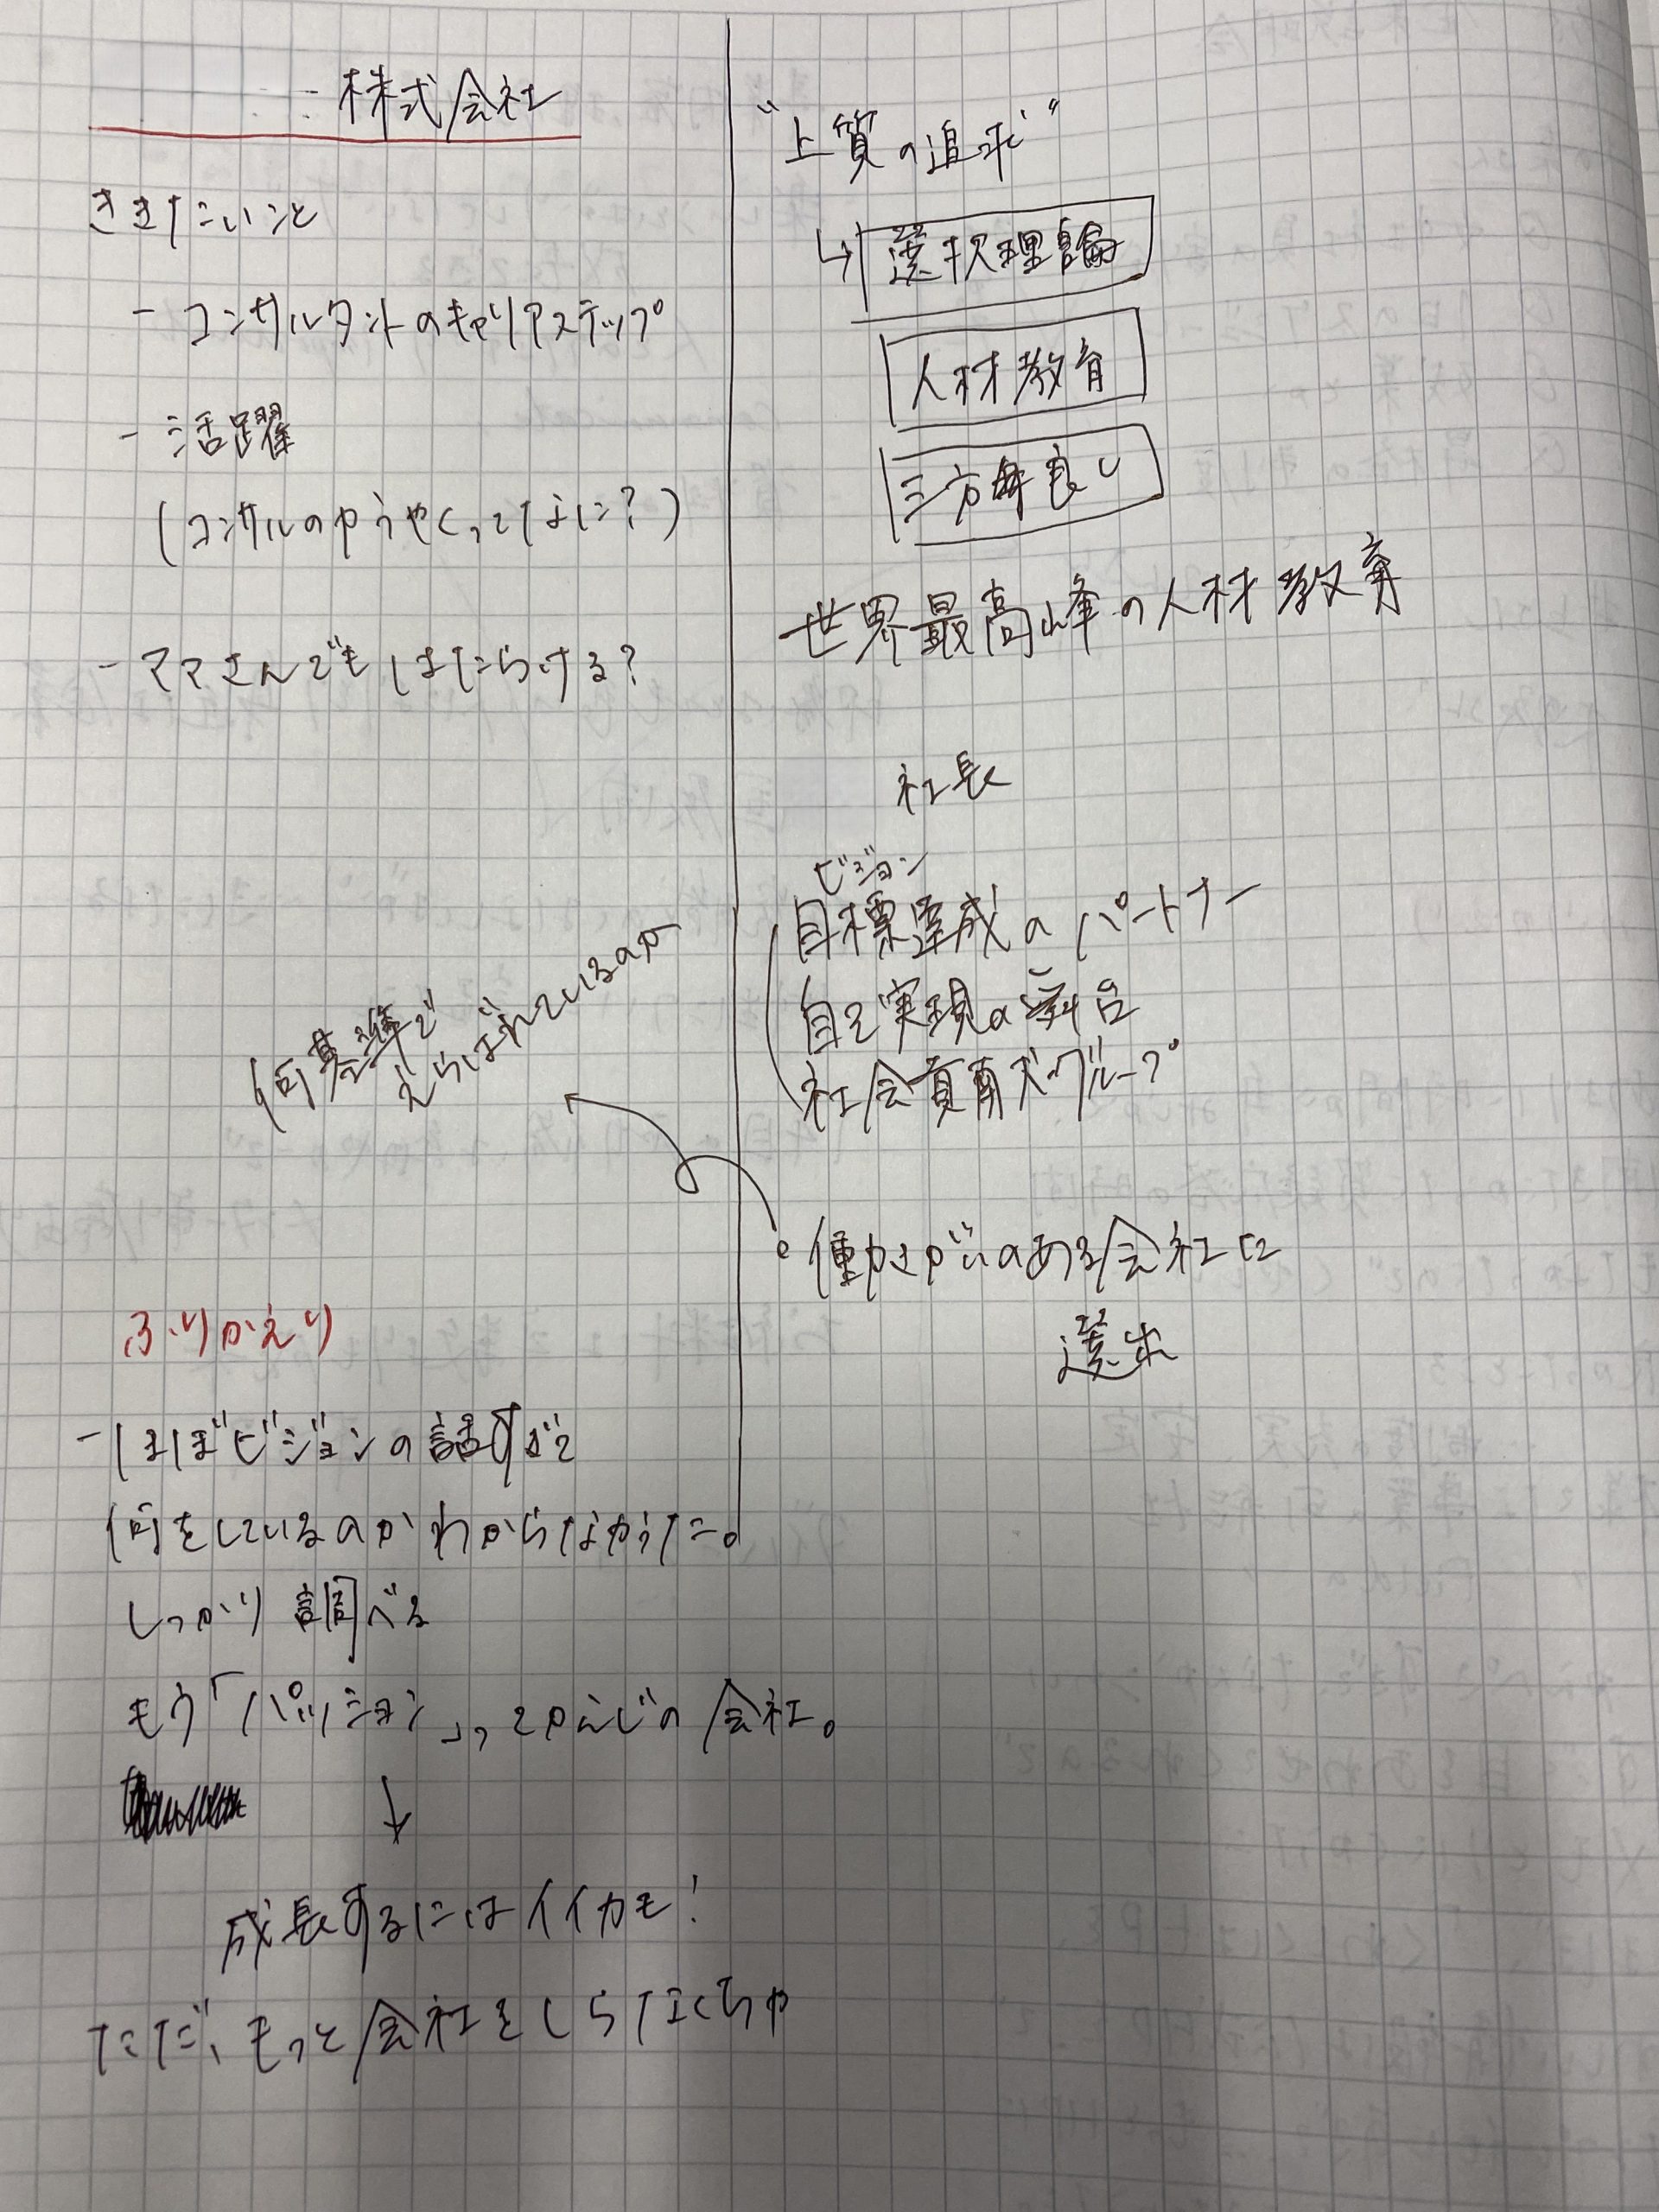 株式会社
ききたいこと
- コンサルタントのキャリアステップ
- 活躍
(コンサルのかつやくってなに?)
- ママさんでもはたらける?
何基準で
えらばれているのか
ふりかえり
- ほぼビジョンの話すぎて
何をしているのかわからなかった。
しっかり調べる
もう「パッション」ってかんじの会社。
↓
成長するにはイイカモ!
ただ、もっと会社をしらなくちゃ
"上質の追求"
↳ 選択理論
人材教育
三方良し
世界最高峰の人材教育
社長
ビジョン
目標達成のパートナー
自己実現の舞台
社会貢献グループ
働きがいのある会社に
選出